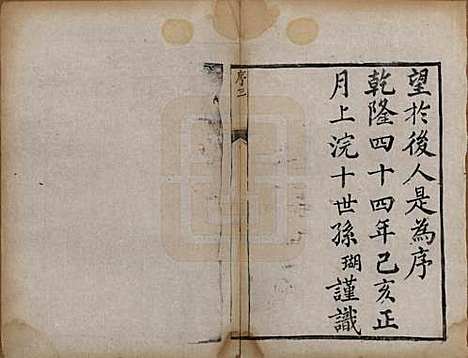 望於後人是為序
乾隆四十四年己亥正
月上浣十世孫瑚謹識
序三